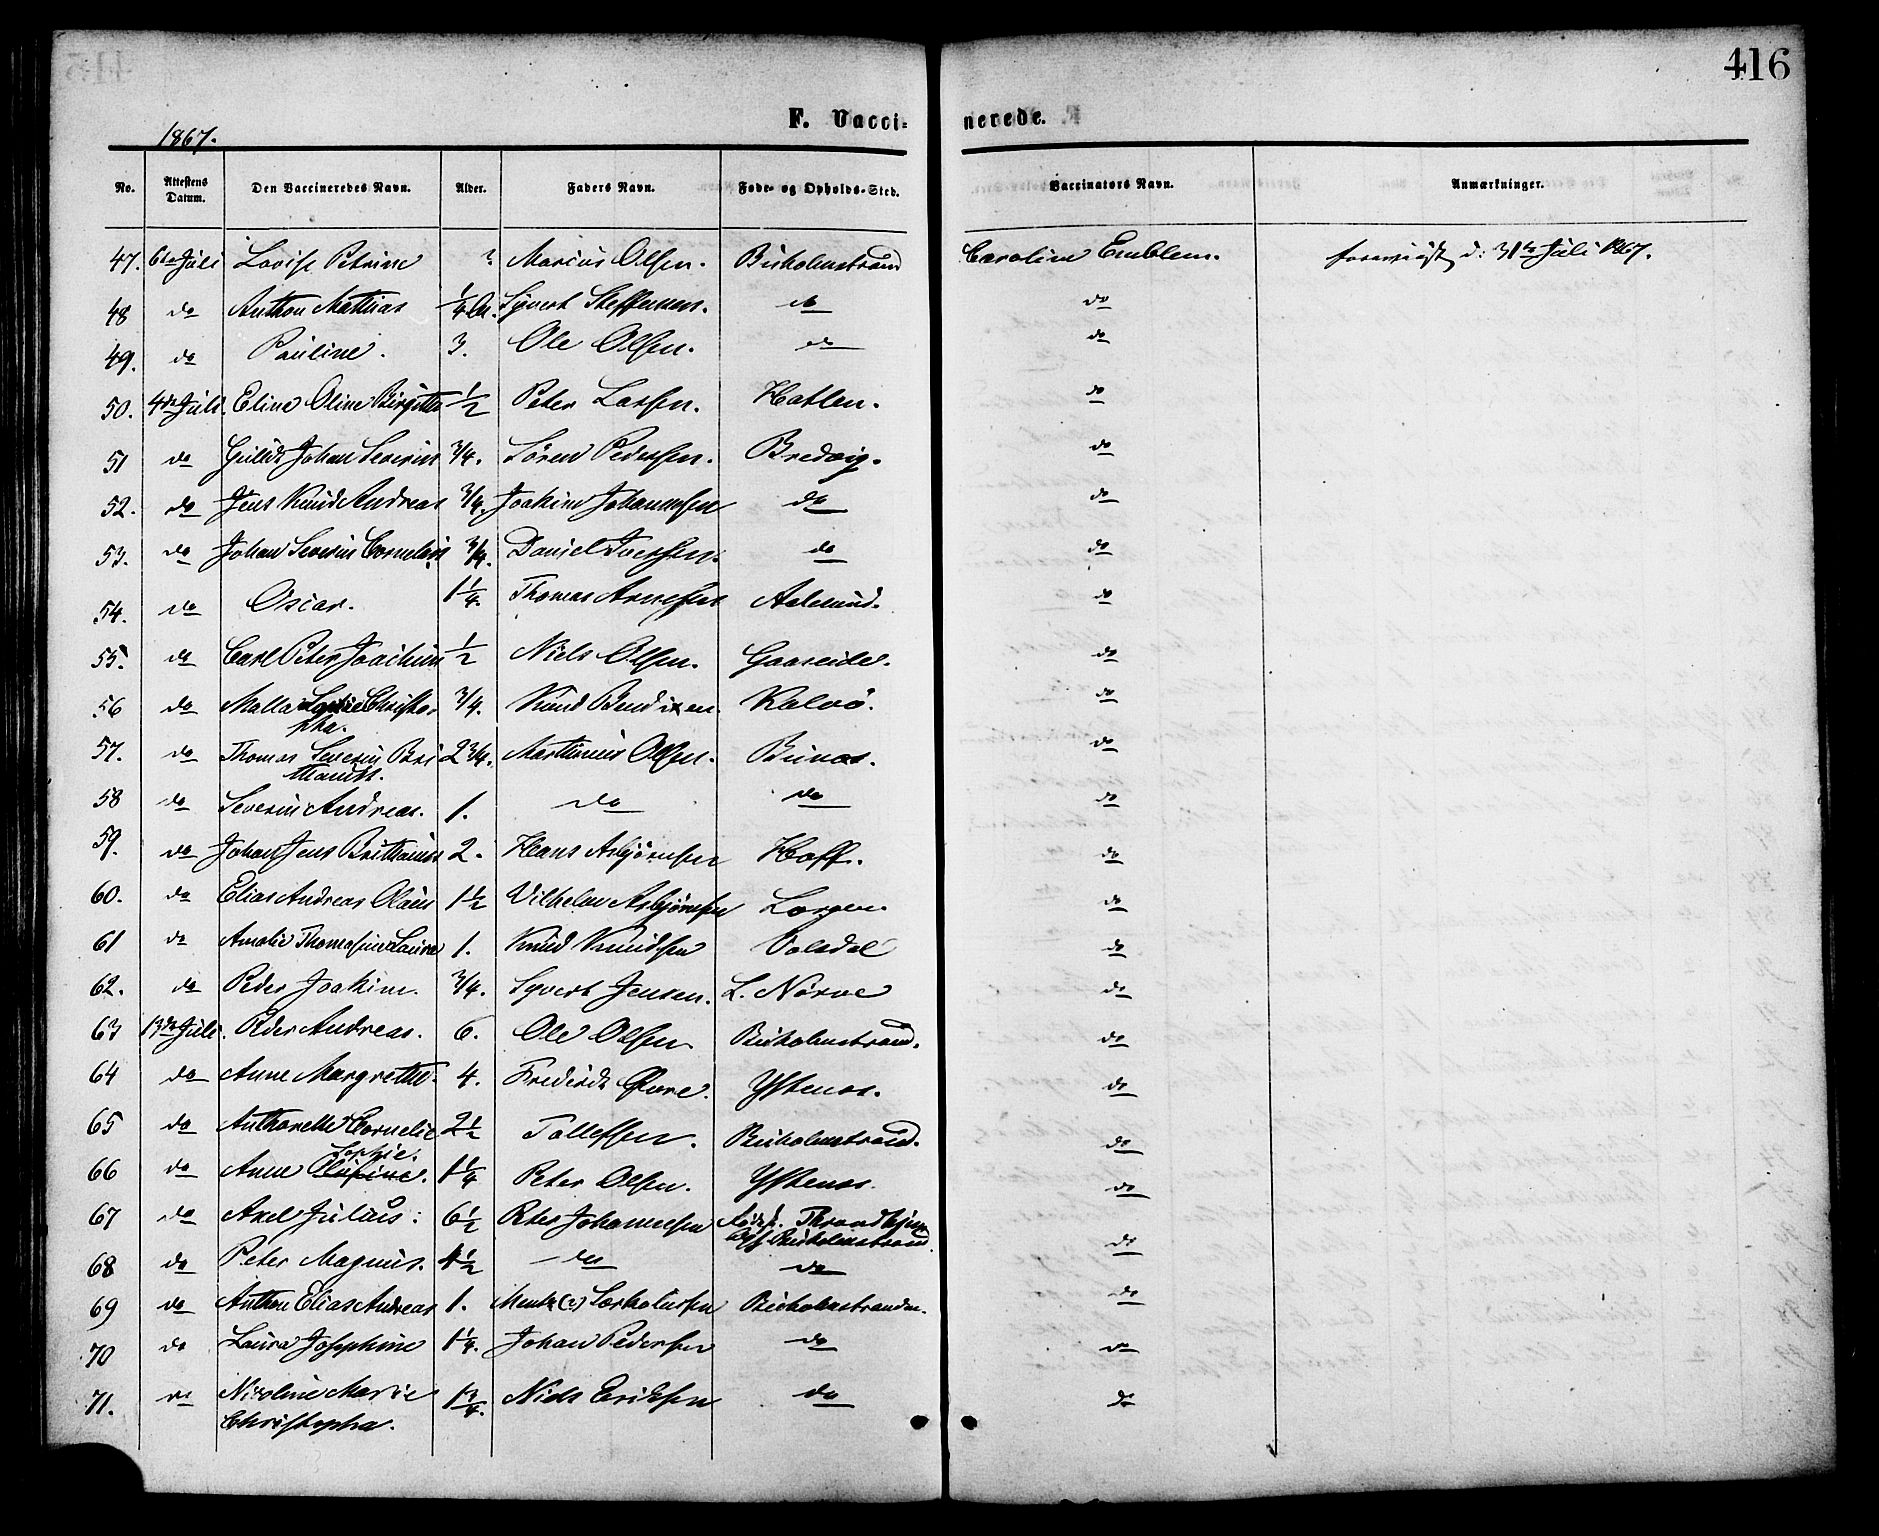 416
F. Vacci= nerede.
1867.
No. Attestens Datum. Den Vaccineredes Navn. Alder. Faders Navn. Føde- og Opholds-Sted. Vaccinators Navn. Anmærkninger.
47. 6te Juli Lovise Petrine ? Marius Olsen. Buholmstrand Caroline Emblem. foreviist d: 31te Juli 1867.
48 do Anthon Mathias 1/4 Syvert Steffensen. do do
49. do Pauline. 3. Ole Olsen. do do
50. 4de Juli. Eline Oline Birgitte 1/2 Peter Larsen. Hatlen. do
51 do Johan Severin 3/4. Sören Pedersen. Bredvig. do
52. do Jens Knud Andreas 3/4. Joakim Johannesen do do
53. do Johan Severin Cornelius 3/4. Daniel Iversen. do do
54. do Oscar. 1 1/4. Thomas Arnesen Aalesund. do
55. do Carl Peter Joachim 1/2 Niels Olsen. Gaaseide. do
56 do Malla Christo= 3/4. Knud Bendixen. Kalvö. do
pha.
57. do Thomas Severin Bri 2 3/4. Marthinus Olsen. do
58 do Severin Andreas. 1. do do do
59. do Johan Jens Brithanus 2. Hans Asbjørnsen Hoff. do
60. do Elias Andreas Olaus 1 1/2 Vilhelm Asbjørnsen Lorgen do
61 do Amalie Thomasine Laura 1. Knud Knudsen Volsdal do
62. do Peder Joakim. 3/4. Syvert Jensen. L. Nørve do
63 13de Juli. Peder Andreas. 6. Ole Olsen Buholmstrand. do
64 do Anne Margrethe. 4. Frederik Ystenes. do
65 do Anthonette Cornelie 2 1/2 Tollefsen. Buholmstrand. do
Sophie.
66 do Anne Olufine. 1 1/4 Peter Olsen. Ystenes. do
67 do Axel Julius: 6 1/2 Peter Johannesen Föds. Throndhjem
Buholmstrand. do
68 do Peter Magnus. 4 1/2 do do
69 do Anthon Elias Andreas 1. Mentz (?) Buholmstranden. do
70 do Laura Josephine 1 1/4. Johan Pedersen do do
71. do Nicoline Marie 1 3/4. Niels Eriksen do do
Christopha.